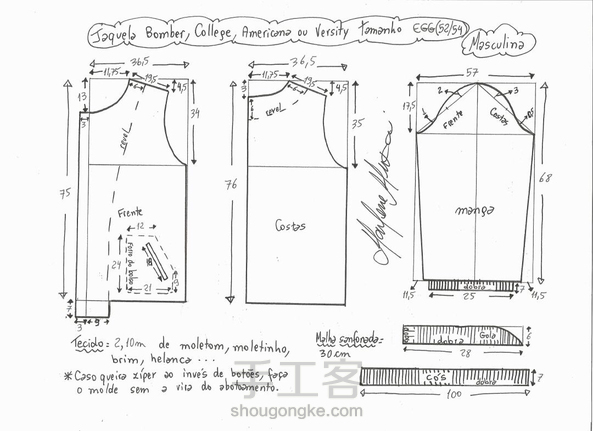 Jaqueta Bomber, College, Americana ou Versity tamanho EGG(52/54)
Masculina
36,5
11,75
19,5
6
4,5
13
3
34
revel
75
Frente
12
24
Forro do bolso
18
13
21
7
3
9
36,5
11,75
19,5
6
4,5
revel
35
76
Costas
Marlene Mukai
57
2
3
17,5
Frente
Costas
68
manga
7
dobra
11,5
25
11,5
Tecido: 2,10m de moletom, moletinho,
brim, helanca ...
* Caso queira zíper ao invés de botões, faça
o molde sem a vira do abotoamento.
Malha sanforada:
30cm
dobra
Gola
dobra
6
28
Cós
dobra
7
100
手工客
shougongke.com